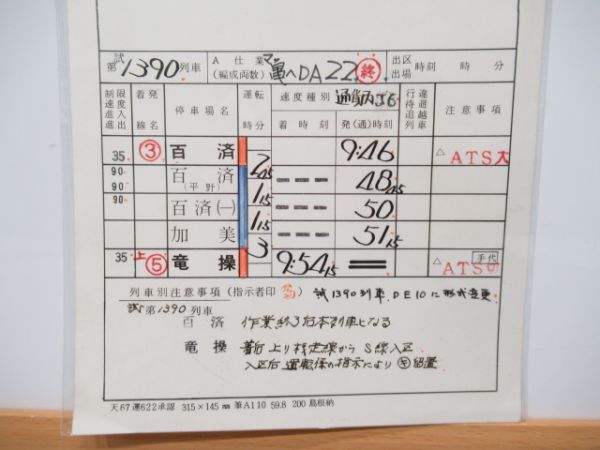 第試1390列車 A 仕業(編成両数) 亀へDA22 終 出区出場 時刻 時 分
制限速度進入進出 着発線名 停車場名 運転時分 速度種別 通貨丙 着時刻 発(通)時刻 行違待避退越列車 注意事項
35 ③ 百済 9:46 △ATS入
2 45
90 90 百済(平野) 48 45
1 15
90 百済(一) 50
1 15
加美 51 15
3
35 上⑤ 竜操 9:54 15 手代 △ATS切
列車別注意事項(指示者印 試1390列車、DE10に形式変更。
試第1390列車
百済 作業終了后本列車となる
竜操 着后上り授走線からS線入区
入区后運転係の指示により 留置
天67運622承認 315×145㎜ 筆A110 59.8 200 島根納